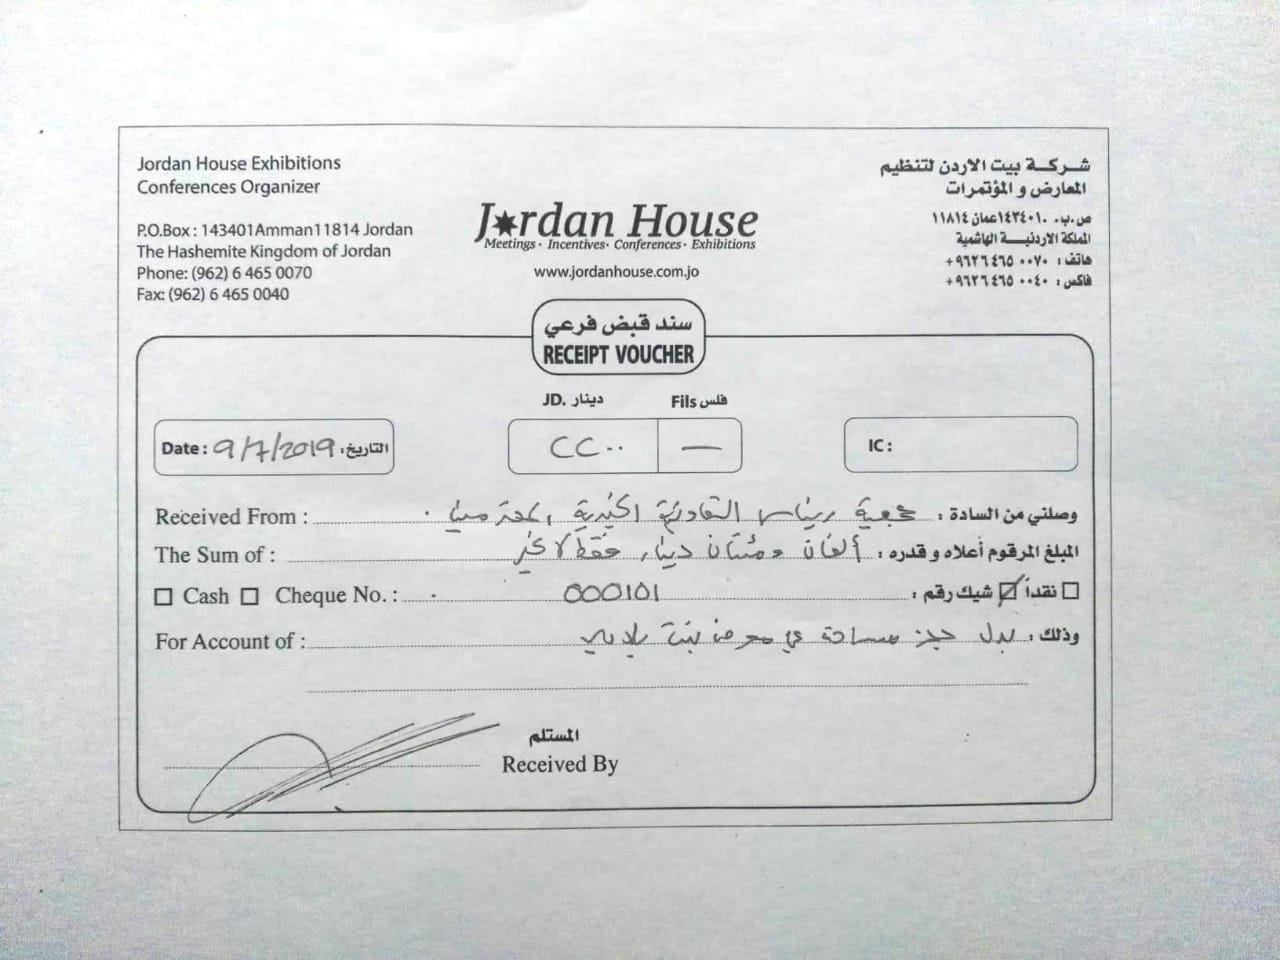 Jordan House Exhibitions
Conferences Organizer
P.O.Box : 143401Amman11814 Jordan
The Hashemite Kingdom of Jordan
Phone: (962) 6 465 0070
Fax: (962) 6 465 0040
Jordan House
Meetings· Incentives· Conferences· Exhibitions
www.jordanhouse.com.jo
شركة بيت الاردن لتنظيم
المعارض و المؤتمرات
ص.ب. ١٤٣٤٠١عمان ١١٨١٤
المملكة الاردنية الهاشمية
هاتف : ٠٠٧٠ ٤٦٥ ٩٦٢٦+
فاكس : ٠٠٤٠ ٤٦٥ ٩٦٢٦+
سند قبض فرعي
RECEIPT VOUCHER
JD. دينار Fils فلس
Date : 9/7/2019 التاريخ:
٢٢٠٠ —
IC :
Received From : جمعية التعاونية الخيرية المحترمين . وصلني من السادة :
The Sum of : ألفان ومئتان دينار فقط لا غير المبلغ المرقوم أعلاه و قدره :
Cash Cheque No. : 000101 نقداً شيك رقم :
For Account of : بدل حجز مساحة في معرض بنت بلادي وذلك :
المستلم
Received By